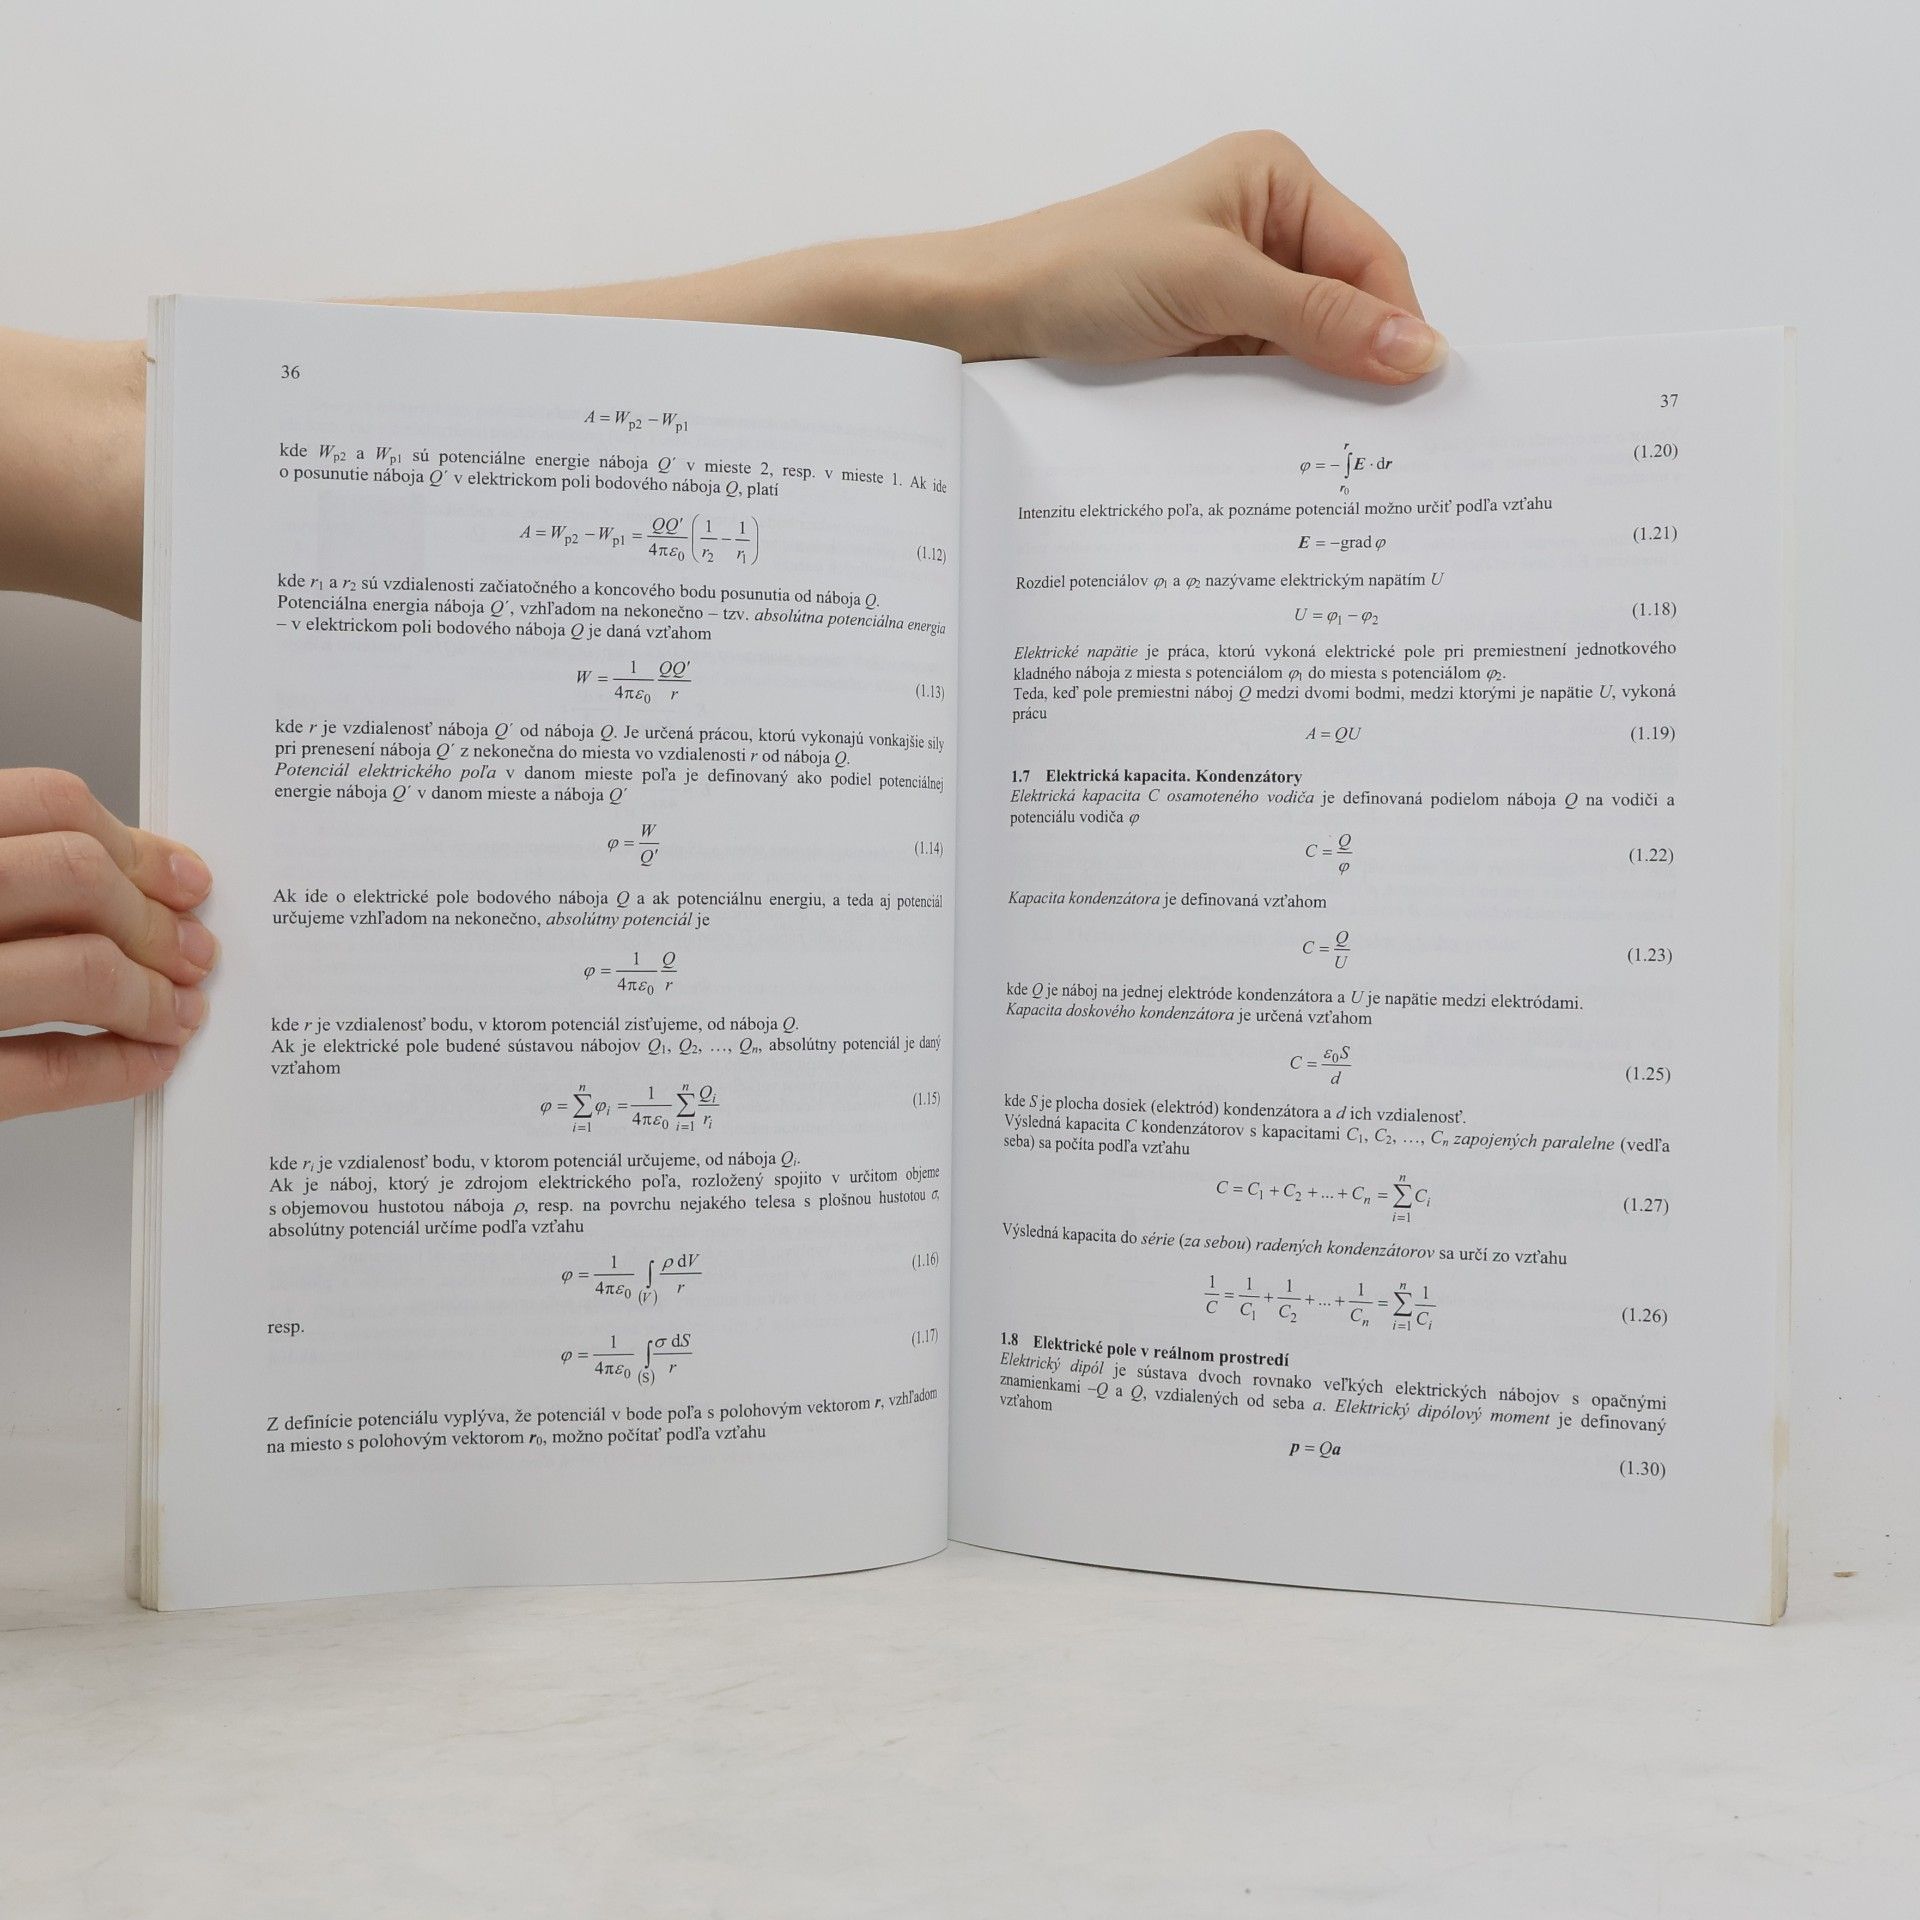 36
A = W_p2 − W_p1
kde W_p2 a W_p1 sú potenciálne energie náboja Q´ v mieste 2, resp. v mieste 1. Ak ide
o posunutie náboja Q´ v elektrickom poli bodového náboja Q, platí
A = W_p2 − W_p1 = QQ′/4πε₀ (1/r₂ − 1/r₁) (1.12)
kde r₁ a r₂ sú vzdialenosti začiatočného a koncového bodu posunutia od náboja Q.
Potenciálna energia náboja Q´, vzhľadom na nekonečno – tzv. absolútna potenciálna energia
– v elektrickom poli bodového náboja Q je daná vzťahom
W = 1/4πε₀ QQ′/r (1.13)
kde r je vzdialenosť náboja Q´ od náboja Q. Je určená prácou, ktorú vykonajú vonkajšie sily
pri prenesení náboja Q´ z nekonečna do miesta vo vzdialenosti r od náboja Q.
Potenciál elektrického poľa v danom mieste poľa je definovaný ako podiel potenciálnej
energie náboja Q´ v danom mieste a náboja Q´
φ = W/Q′ (1.14)
Ak ide o elektrické pole bodového náboja Q a ak potenciálnu energiu, a teda aj potenciál
určujeme vzhľadom na nekonečno, absolútny potenciál je
φ = 1/4πε₀ Q/r
kde r je vzdialenosť bodu, v ktorom potenciál zisťujeme, od náboja Q.
Ak je elektrické pole budené sústavou nábojov Q₁, Q₂, …, Qₙ, absolútny potenciál je daný
vzťahom
φ = ∑ᵢ₌₁ⁿ φᵢ = 1/4πε₀ ∑ᵢ₌₁ⁿ Qᵢ/rᵢ (1.15)
kde rᵢ je vzdialenosť bodu, v ktorom potenciál určujeme, od náboja Qᵢ.
Ak je náboj, ktorý je zdrojom elektrického poľa, rozložený spojito v určitom objeme
s objemovou hustotou náboja ρ, resp. na povrchu nejakého telesa s plošnou hustotou σ,
absolútny potenciál určíme podľa vzťahu
φ = 1/4πε₀ ∫(V) ρ dV/r (1.16)
resp.
φ = 1/4πε₀ ∫(S) σ dS/r (1.17)
Z definície potenciálu vyplýva, že potenciál v bode poľa s polohovým vektorom r, vzhľadom
na miesto s polohovým vektorom r₀, možno počítať podľa vzťahu
37
φ = − ∫_r₀^r E · dr (1.20)
Intenzitu elektrického poľa, ak poznáme potenciál možno určiť podľa vzťahu
E = −grad φ (1.21)
Rozdiel potenciálov φ₁ a φ₂ nazývame elektrickým napätím U
U = φ₁ − φ₂ (1.18)
Elektrické napätie je práca, ktorú vykoná elektrické pole pri premiestnení jednotkového
kladného náboja z miesta s potenciálom φ₁ do miesta s potenciálom φ₂.
Teda, keď pole premiestni náboj Q medzi dvomi bodmi, medzi ktorými je napätie U, vykoná
prácu
A = QU (1.19)
1.7 Elektrická kapacita. Kondenzátory
Elektrická kapacita C osamoteného vodiča je definovaná podielom náboja Q na vodiči a
potenciálu vodiča φ
C = Q/φ (1.22)
Kapacita kondenzátora je definovaná vzťahom
C = Q/U (1.23)
kde Q je náboj na jednej elektróde kondenzátora a U je napätie medzi elektródami.
Kapacita doskového kondenzátora je určená vzťahom
C = ε₀S/d (1.25)
kde S je plocha dosiek (elektród) kondenzátora a d ich vzdialenosť.
Výsledná kapacita C kondenzátorov s kapacitami C₁, C₂, …, Cₙ zapojených paralelne (vedľa
seba) sa počíta podľa vzťahu
C = C₁ + C₂ + ... + Cₙ = ∑ᵢ₌₁ⁿ Cᵢ (1.27)
Výsledná kapacita do série (za sebou) radených kondenzátorov sa určí zo vzťahu
1/C = 1/C₁ + 1/C₂ + ... + 1/Cₙ = ∑ᵢ₌₁ⁿ 1/Cᵢ (1.26)
1.8 Elektrické pole v reálnom prostredí
Elektrický dipól je sústava dvoch rovnako veľkých elektrických nábojov s opačnými
znamienkami –Q a Q, vzdialených od seba a. Elektrický dipólový moment je definovaný
vzťahom
p = Qa (1.30)